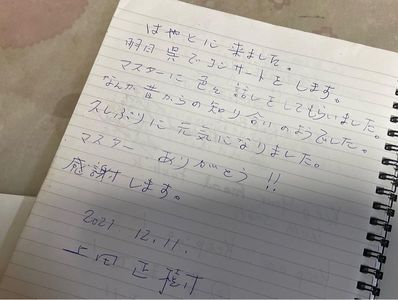 はやとに来ました。
明日 呉でコンサートをします。
マスターに色々話しをしてもらいました。
なんか昔からの知り合いのようでした。
久しぶりに元気になりました。
マスター ありがとう!!
感謝します。
2021.12.11.
上田正